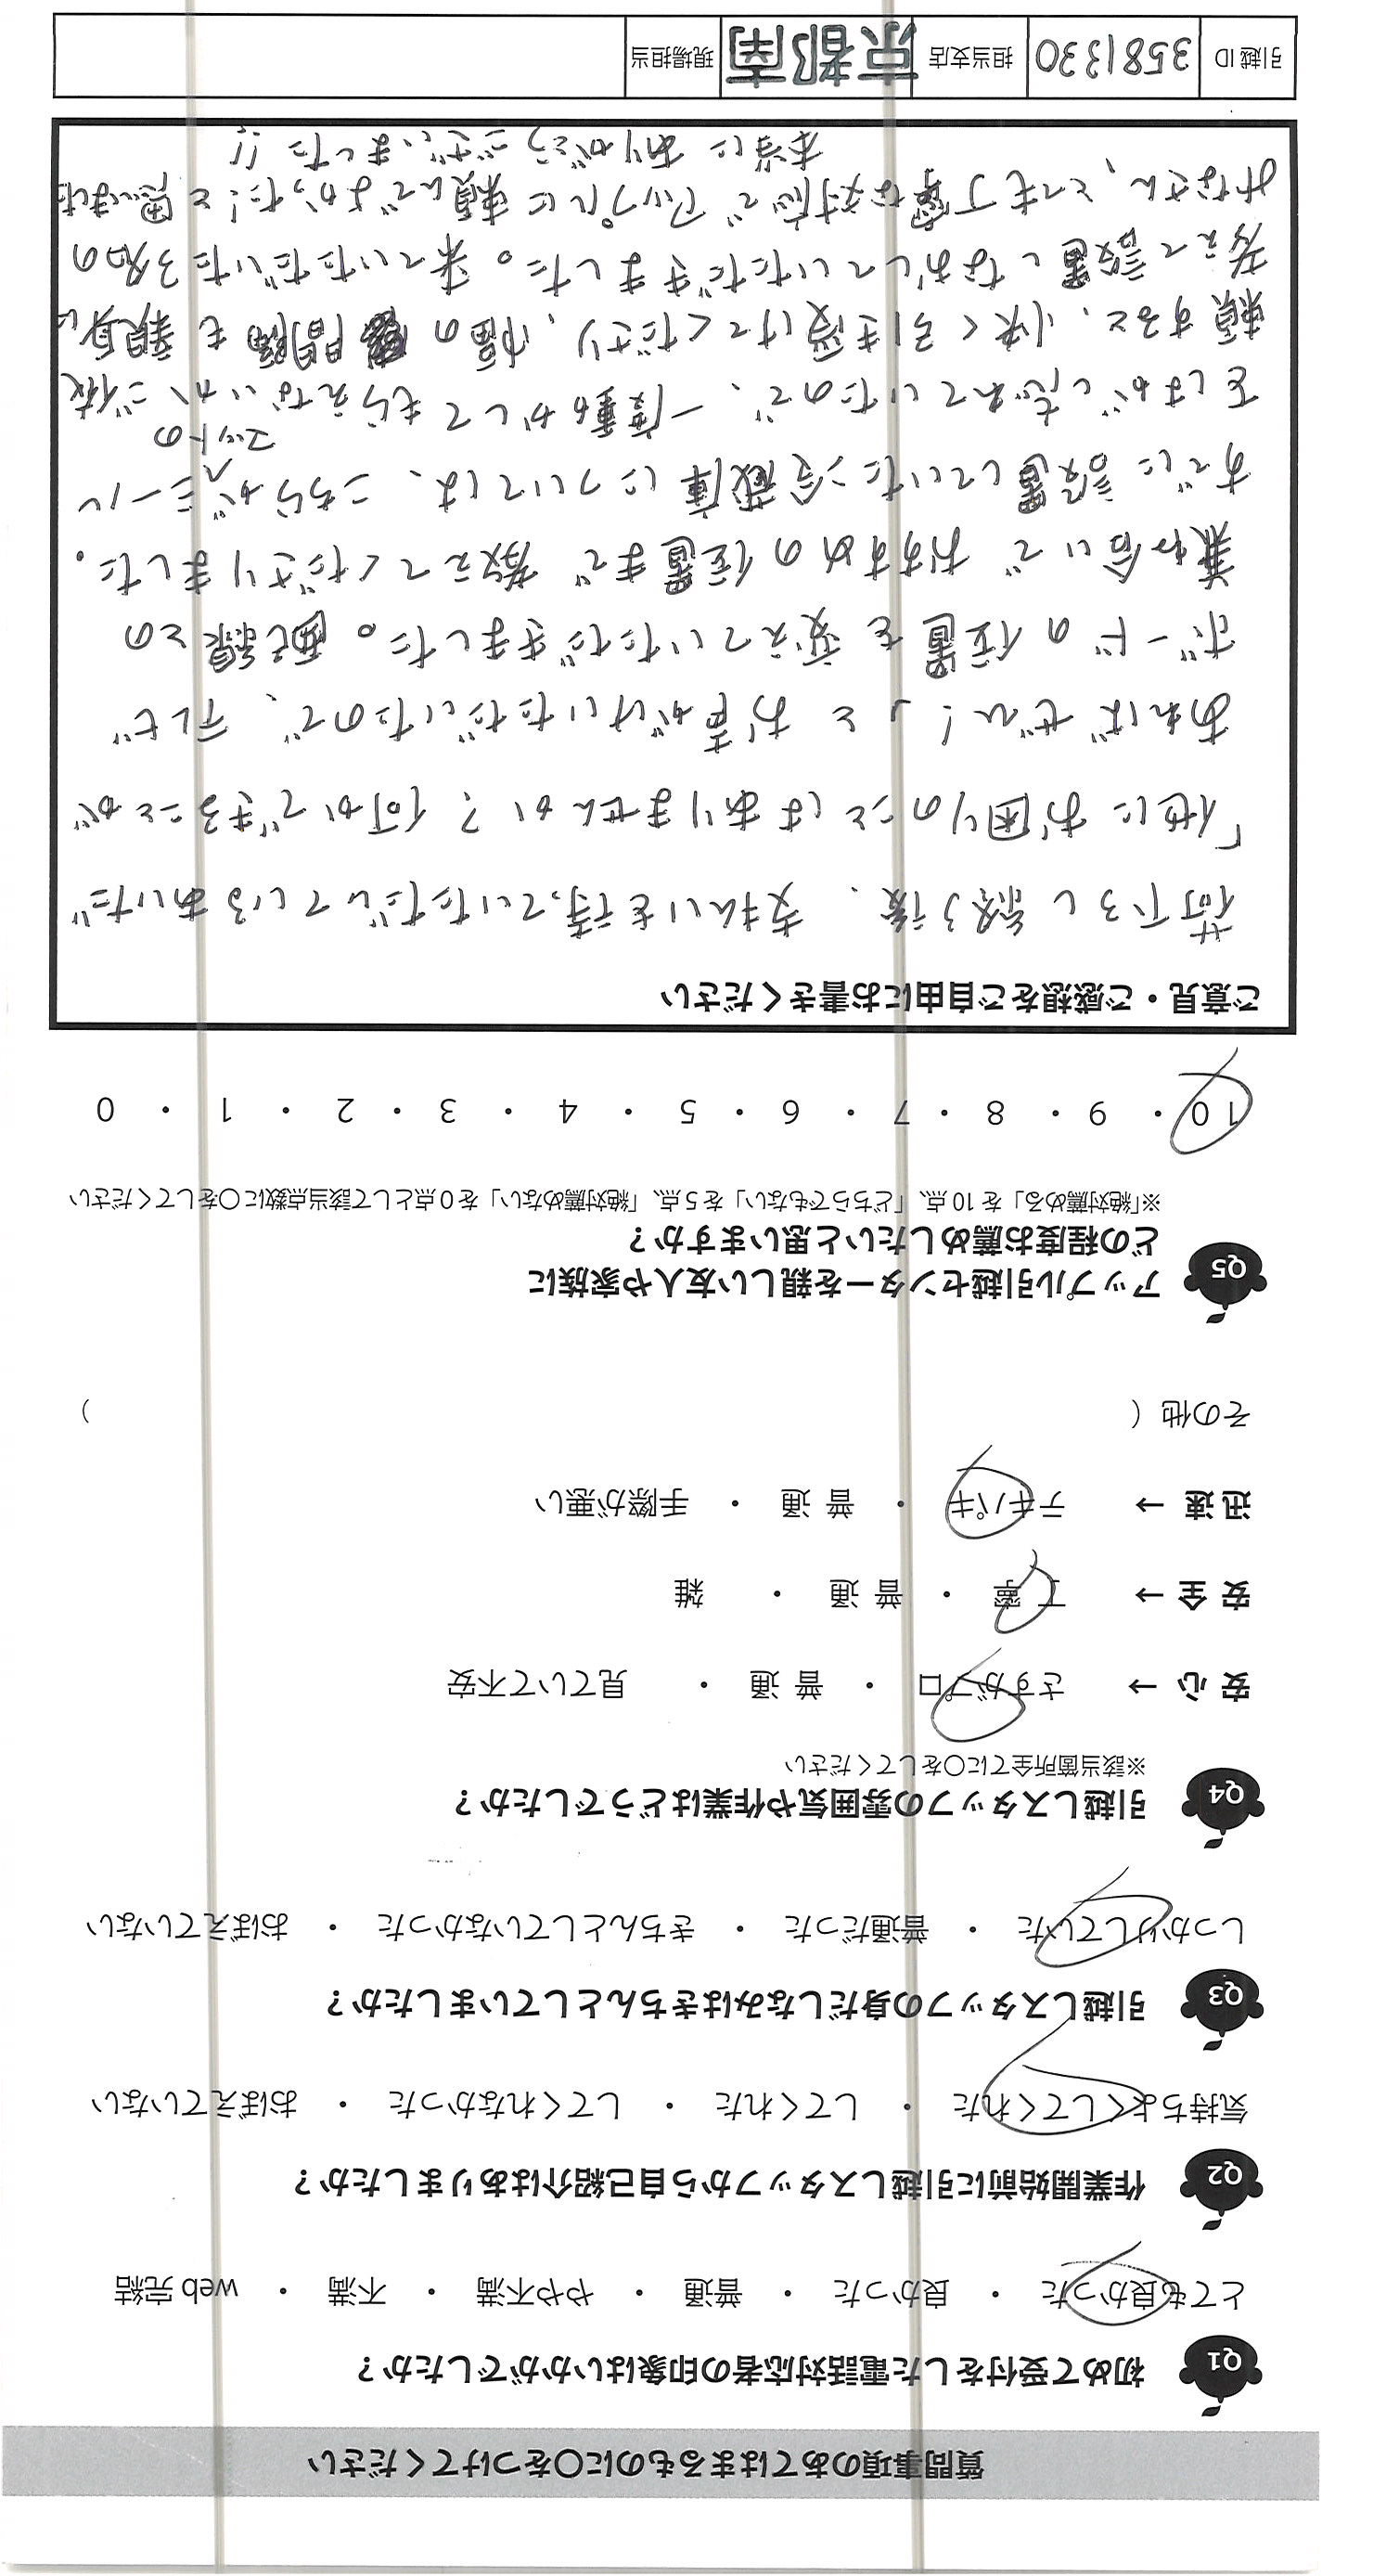 質問事項のあてはまるものに〇をつけてください
Q1 初めて受付をした電話対応者の印象はいかがでしたか？
とても良かった ・ 良かった ・ 普通 ・ やや不満 ・ 不満 ・ web 完結
Q2 作業開始前に引越しスタッフから自己紹介はありましたか？
気持ちよくしてくれた ・ してくれた ・ してくれなかった ・ おぼえていない
Q3 引越しスタッフの身だしなみはきちんとしていましたか？
しっかりしていた ・ 普通だった ・ きちんとしていなかった ・ おぼえていない
Q4 引越しスタッフの雰囲気や作業はどうでしたか？
※該当箇所全てに〇をしてください
安 心 → さすがプロ ・ 普 通 ・ 見ていて不安
安 全 → 丁 寧 ・ 普 通 ・ 雑
迅 速 → テキパキ ・ 普 通 ・ 手際が悪い
その他（ ）
Q5 アップル引越センターを親しい友人や家族に
どの程度お薦めしたいと思いますか？
※「絶対薦める」を 10 点、「どちらでもない」を 5 点、「絶対薦めない」を 0 点として該当点数に〇をしてください
10 ・ 9 ・ 8 ・ 7 ・ 6 ・ 5 ・ 4 ・ 3 ・ 2 ・ 1 ・ 0
ご意見・ご感想をご自由にお書きください
荷下ろし終了後、支払いを待っていただいているあいだ
「他にお困りのことはありませんか？何かできることが
あればぜひ！」とお声がけいただいたので、テレビ
ボードの位置を変えていただきました。配線との
兼ね合いでおすすめの位置まで教えてくださりました。
すでに設置していた冷蔵庫については、こちらがミール
マットの
をはがし忘れていたので、一度動かしてもらえないかご依
頼すると、快く引き受けてくださり、幅の隙間も親身に
考えて設置しなおしていただきました。来ていただいた3名の
みなさん、とても丁寧な対応でアップルに頼んでよかった！と思いました
本当にありがとうございました!!
引越 ID 3581330 担当支店 京都南 現場担当